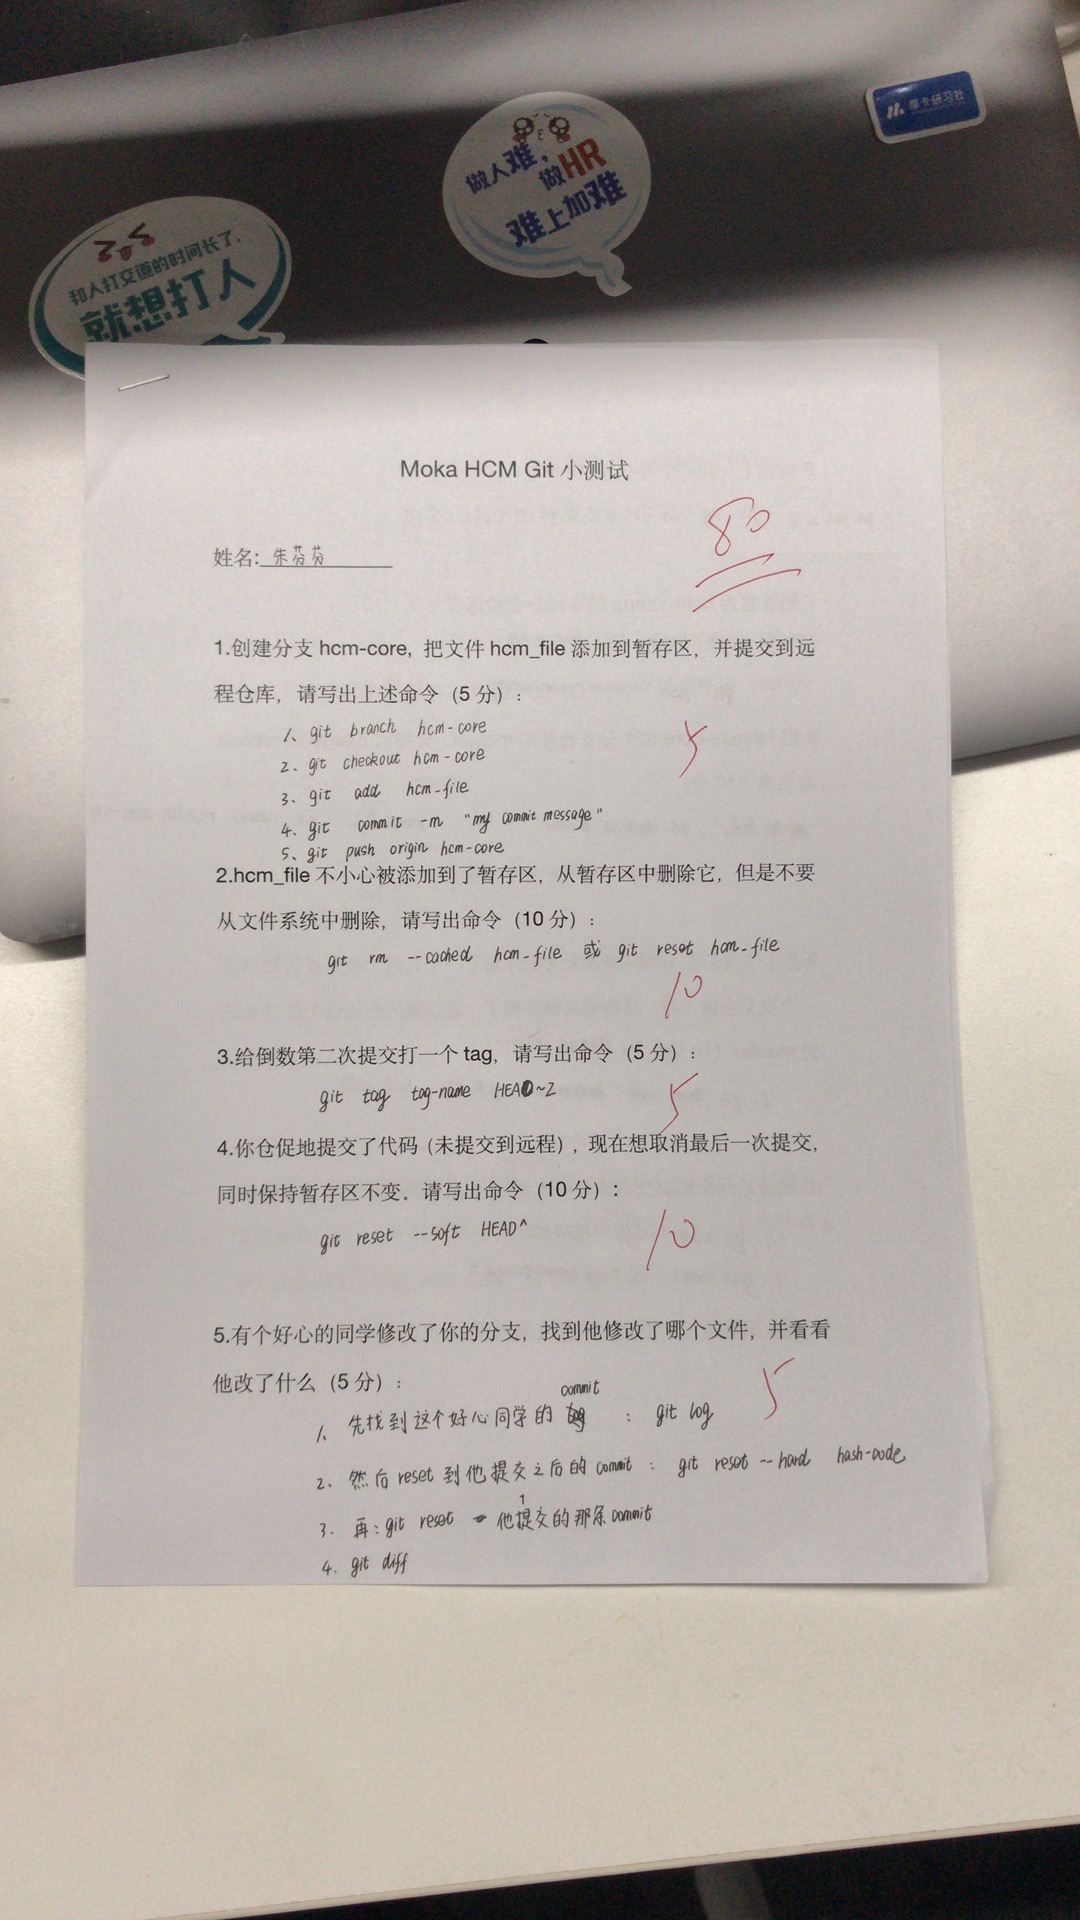 摩卡研习社
做人难，
做HR
难上加难
和人打交道的时间长了，
就想打人
Moka HCM Git 小测试
80
姓名: 朱芬芬
1.创建分支 hcm-core，把文件 hcm_file 添加到暂存区，并提交到远
程仓库，请写出上述命令（5 分）:
1、git branch hcm-core
5
2、git checkout hcm-core
3、git add hcm-file
4、git commit -m "my commit message"
5、git push origin hcm-core
2.hcm_file 不小心被添加到了暂存区，从暂存区中删除它，但是不要
从文件系统中删除，请写出命令（10 分）:
git rm --cached hcm-file 或 git reset hcm-file
10
3.给倒数第二次提交打一个 tag，请写出命令（5 分）:
git tag tag-name HEAD~2
5
4.你仓促地提交了代码（未提交到远程）, 现在想取消最后一次提交，
同时保持暂存区不变。请写出命令（10 分）:
git reset --soft HEAD^
10
5.有个好心的同学修改了你的分支，找到他修改了哪个文件，并看看
他改了什么（5 分）:
5
1、先找到这个好心同学的 commit : git log
2、然后 reset 到他提交之后的 commit : git reset --hard hash-code
3. 再: git reset 他提交的那条commit
4. git diff